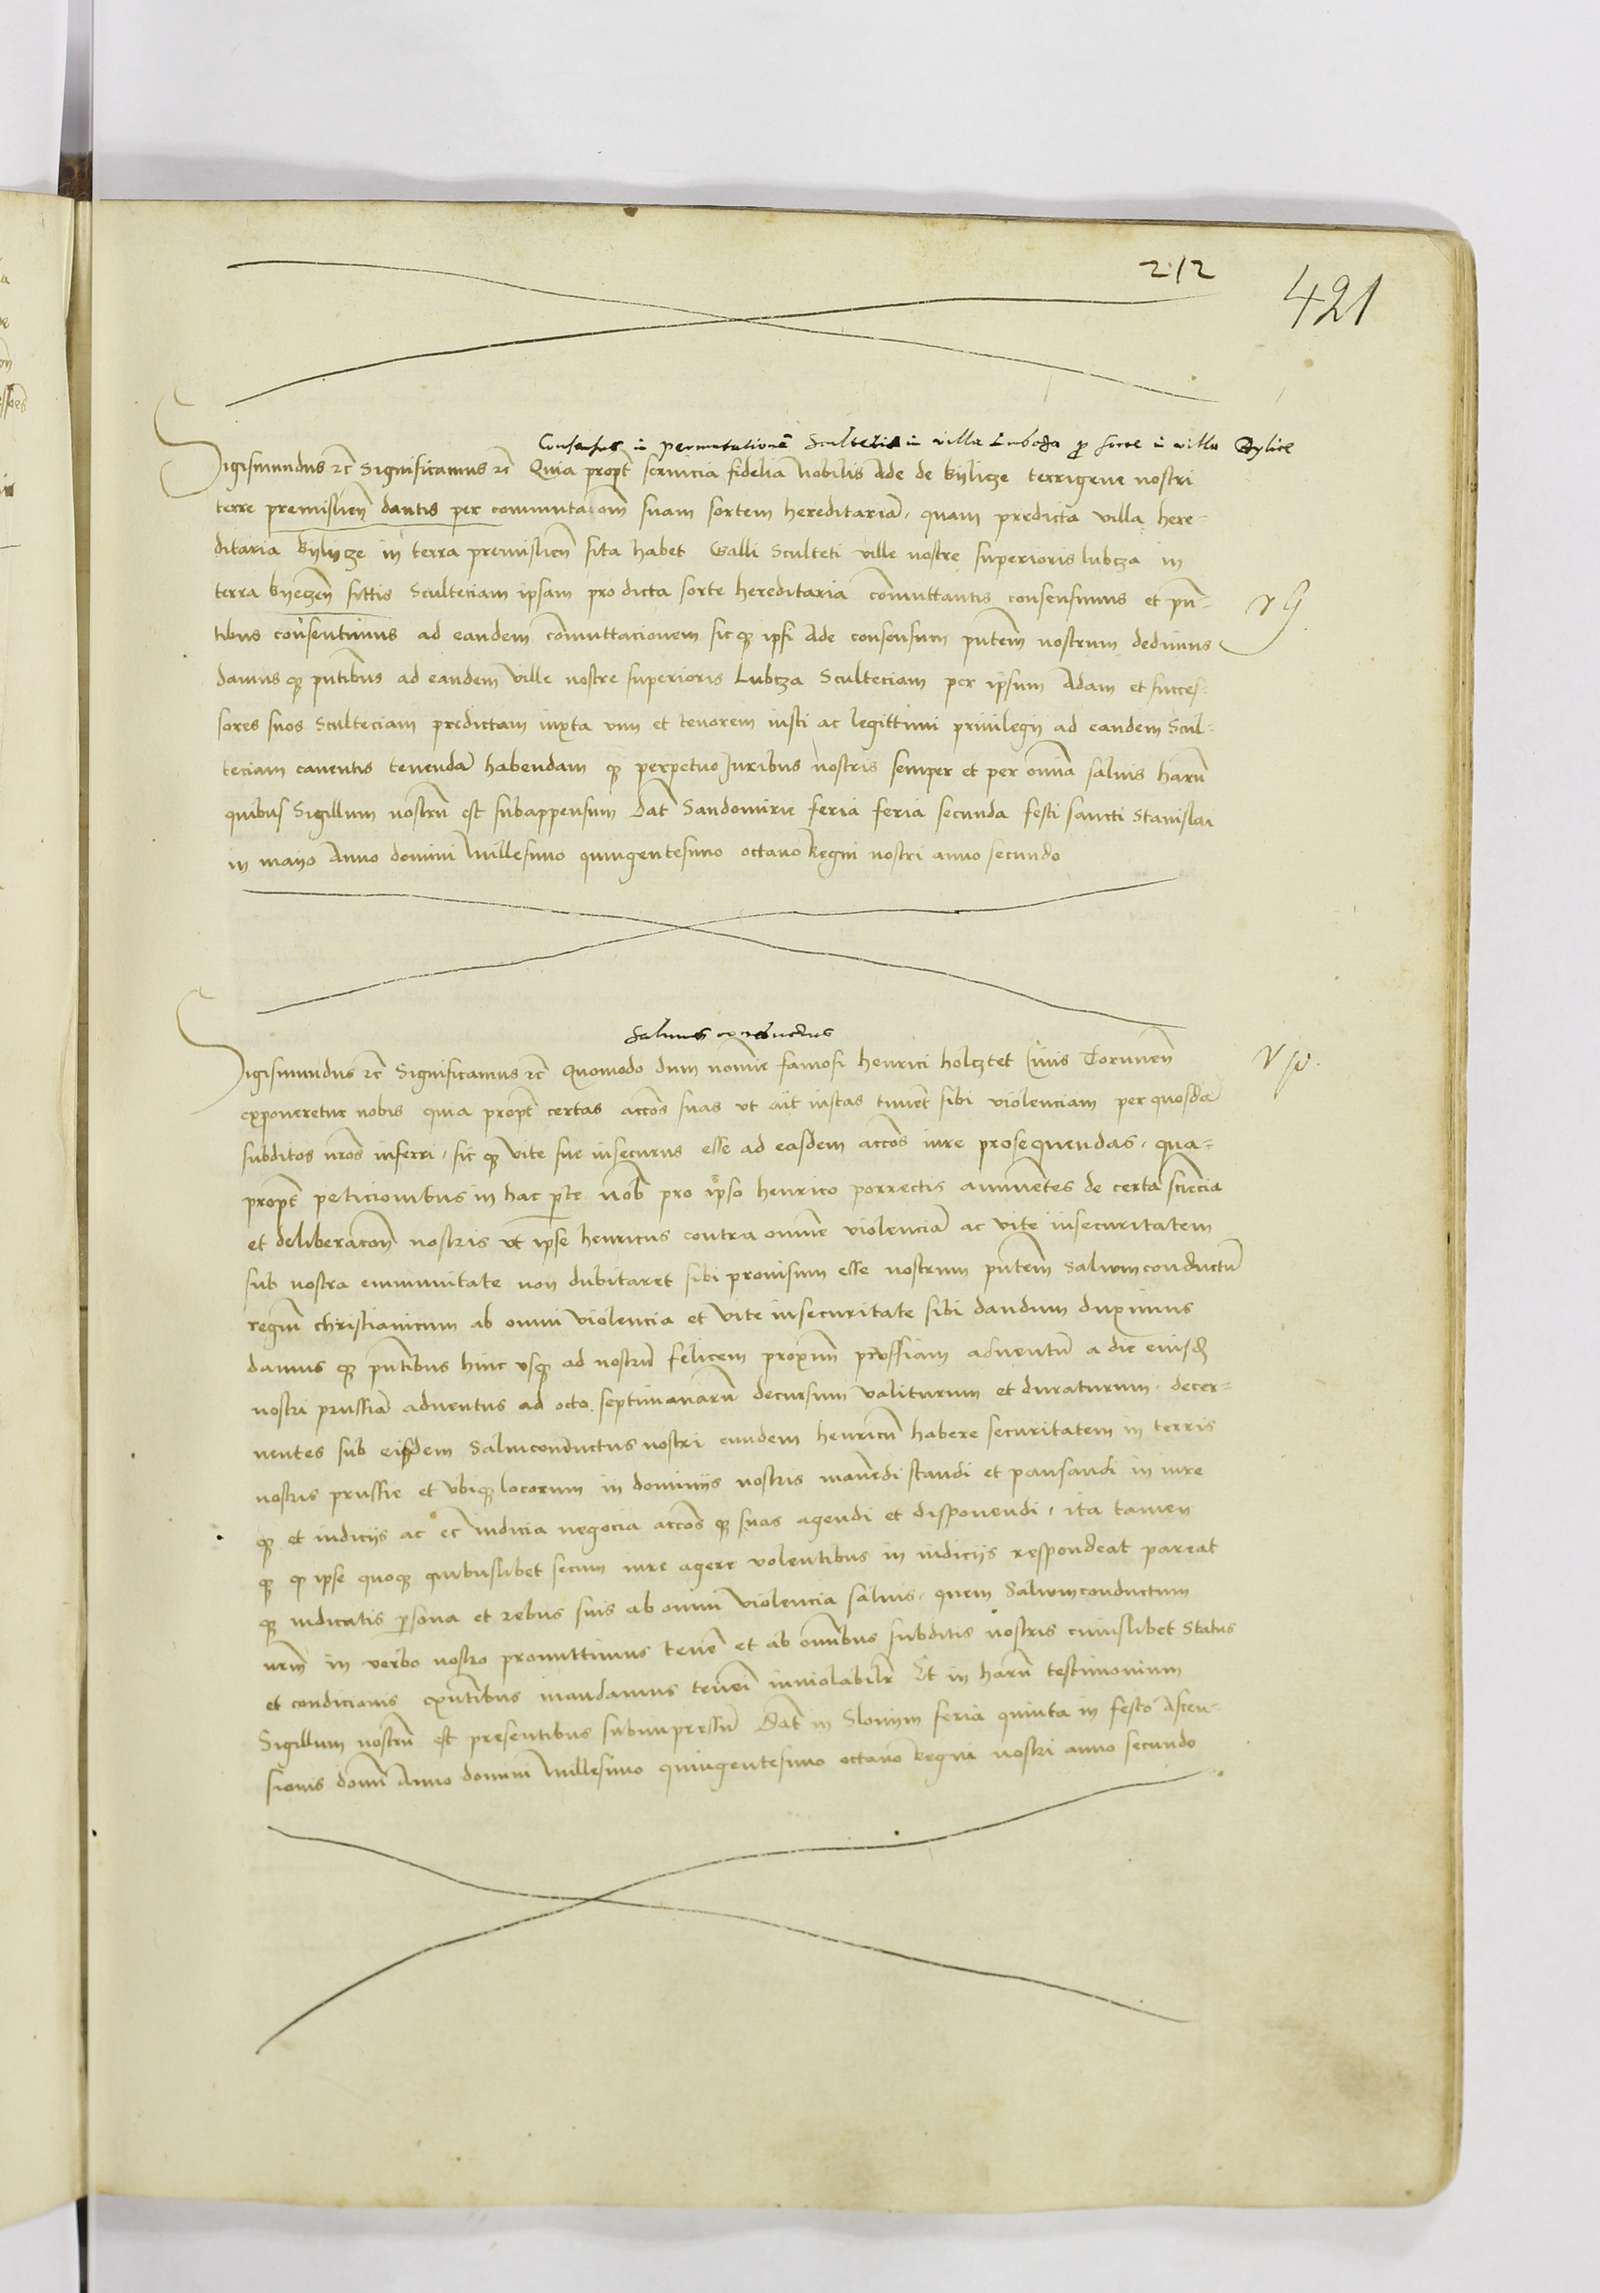 212
421
Consensus in permutationē Scultetia in villa Lubcza p sorte in villa Rylice
Sigismundus rc̄ Significamus rc̄ Quia propt̄ seruicia fidelia Nobilis Ade de Rylicze terrigene nostri
terre premislieñ dantis per commutaiom̄ suam sortem hereditariā, quam predicta villa here-
ditaria Rylycze in terra premislieñ sita habet Galli Sculteti ville nostre superioris lubcza in
terra byeczeñ sittis Sculteciam ipsam pro dicta sorte hereditaria com̄uttantis consensimus et pn̄-
tibus consentimus ad eandem com̄uttacionem sic q̨ ipsi Ade consensum pn̄tem̄ nostrum dedimus
damus q̨ pn̄tibus ad eandem ville nostre superioris Lubcza Sculteciam per ipsum Adam et succes-
sores suos Sculteciam predictam iuxta vim et tenorem iusti ac legittimi priuilegij ad eandem Scul-
teciam canentis tenendā habendam q̨ perpetuo Juribus nostris semper et per om̄ia saluis harū
quibus Sigillum nostrū est subappensum Dat̄ Sandomirie feria feria secunda festi sancti Stanislai
in mayo Anno domini Millesimo quingentesimo octauo Regni nostri anno secundo
Saluus conductus
Sigismundus rc̄ Significamus rc̄ Quomodo dum nomīe famosi henrici holcztet Ciuis Toruneñ
exponeretur nobis quia propt̄ certas accōes suas vt ait iustas timet̄ sibi violenciam per quosdā
subditos nr̄os inferri, sic q̨ vite sue insecurus esse ad easdem accōes iure prosequendas, qua-
propt̄ peticionibus in hac pt̄e nob̄ pro ipso henrico porrectis annuentes de certa sciēcia
et deliberacoñ nostris vt ipse henricus contra omnē violenciā ac vite insecuritatem
sub nostra emunitate non dubitaret sibi prouisum esse nostrum pn̄tem̄ Saluumconductū
regiū christianicum ab omni violencia et vite insecuritate sibi dandum duximus
damus q̨ pn̄tibus hinc vsq̨ ad nostrū felicem proximū prussiam aduentū a die eiusd̄
nostri prussiā aduentus ad octo septimanarū decursum valiturum et duraturum, decer-
nentes sub eisdem Saluiconductus nostri eundem henricū habere securitatem in terris
nostris prussie et vbiq̨ locorum in dominijs nostris manēdi standi et pausandi in iure
q̨ et iudicijs ac ec̄ iudicia negocia accōes q̨ suas agendi et disponendi, ita tamen
q̨ q̇ ipse quoq̨ quibuslibet secum iure agere volentibus in iudicijs respondeat pareat
q̨ iudicatis p̄sona et rebus suis ab omni violencia saluis, quem Saluumconductum
nr̄m in verbo nostro promittimus tenē et ab om̄ibus subditis nostris cuiuslibet Status
et condicionis exn̄tibus mandamus tenēi inuiolabilr̄ Et in harū testimonium
Sigillum nostrū est presentibus subimpressū Dat̄ in Slonim feria quinta in festo Ascen-
sionis domī Anno domini Millesimo quingentesimo octauo Regni nostri anno secundo